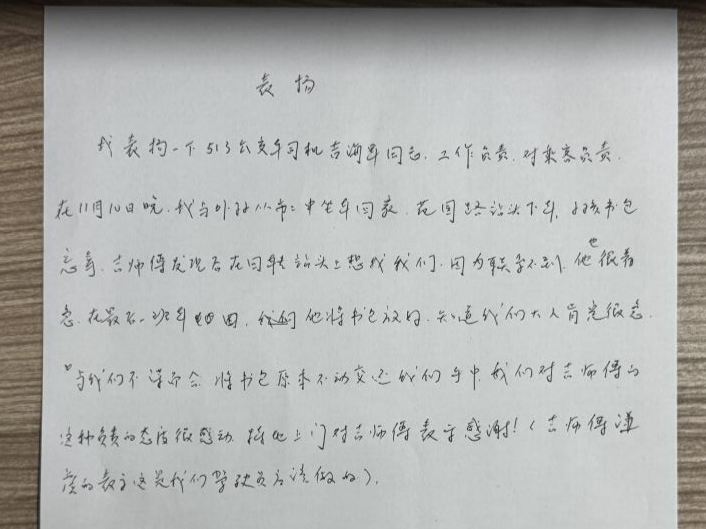 表扬
我表扬一下513公交车司机吉海军同志.工作负责.对乘客负责.
在11月10日晚.我与外孙从市二中坐车回家.花园路站头下车,小孩书包
忘拿.吉师傅发现后在回转站头上想找我们.因为联系不到.他也很着
急.在最后一班车 回.他将书包放好.知道我们大人肯定很急.
与我们不谋而合.将书包原来不动交还我们手中.我们对吉师傅的
这种负责的态度很感动.特地上门对吉师傅表示感谢!(吉师傅谦
虚的表示这是我们驾驶员应该做的).